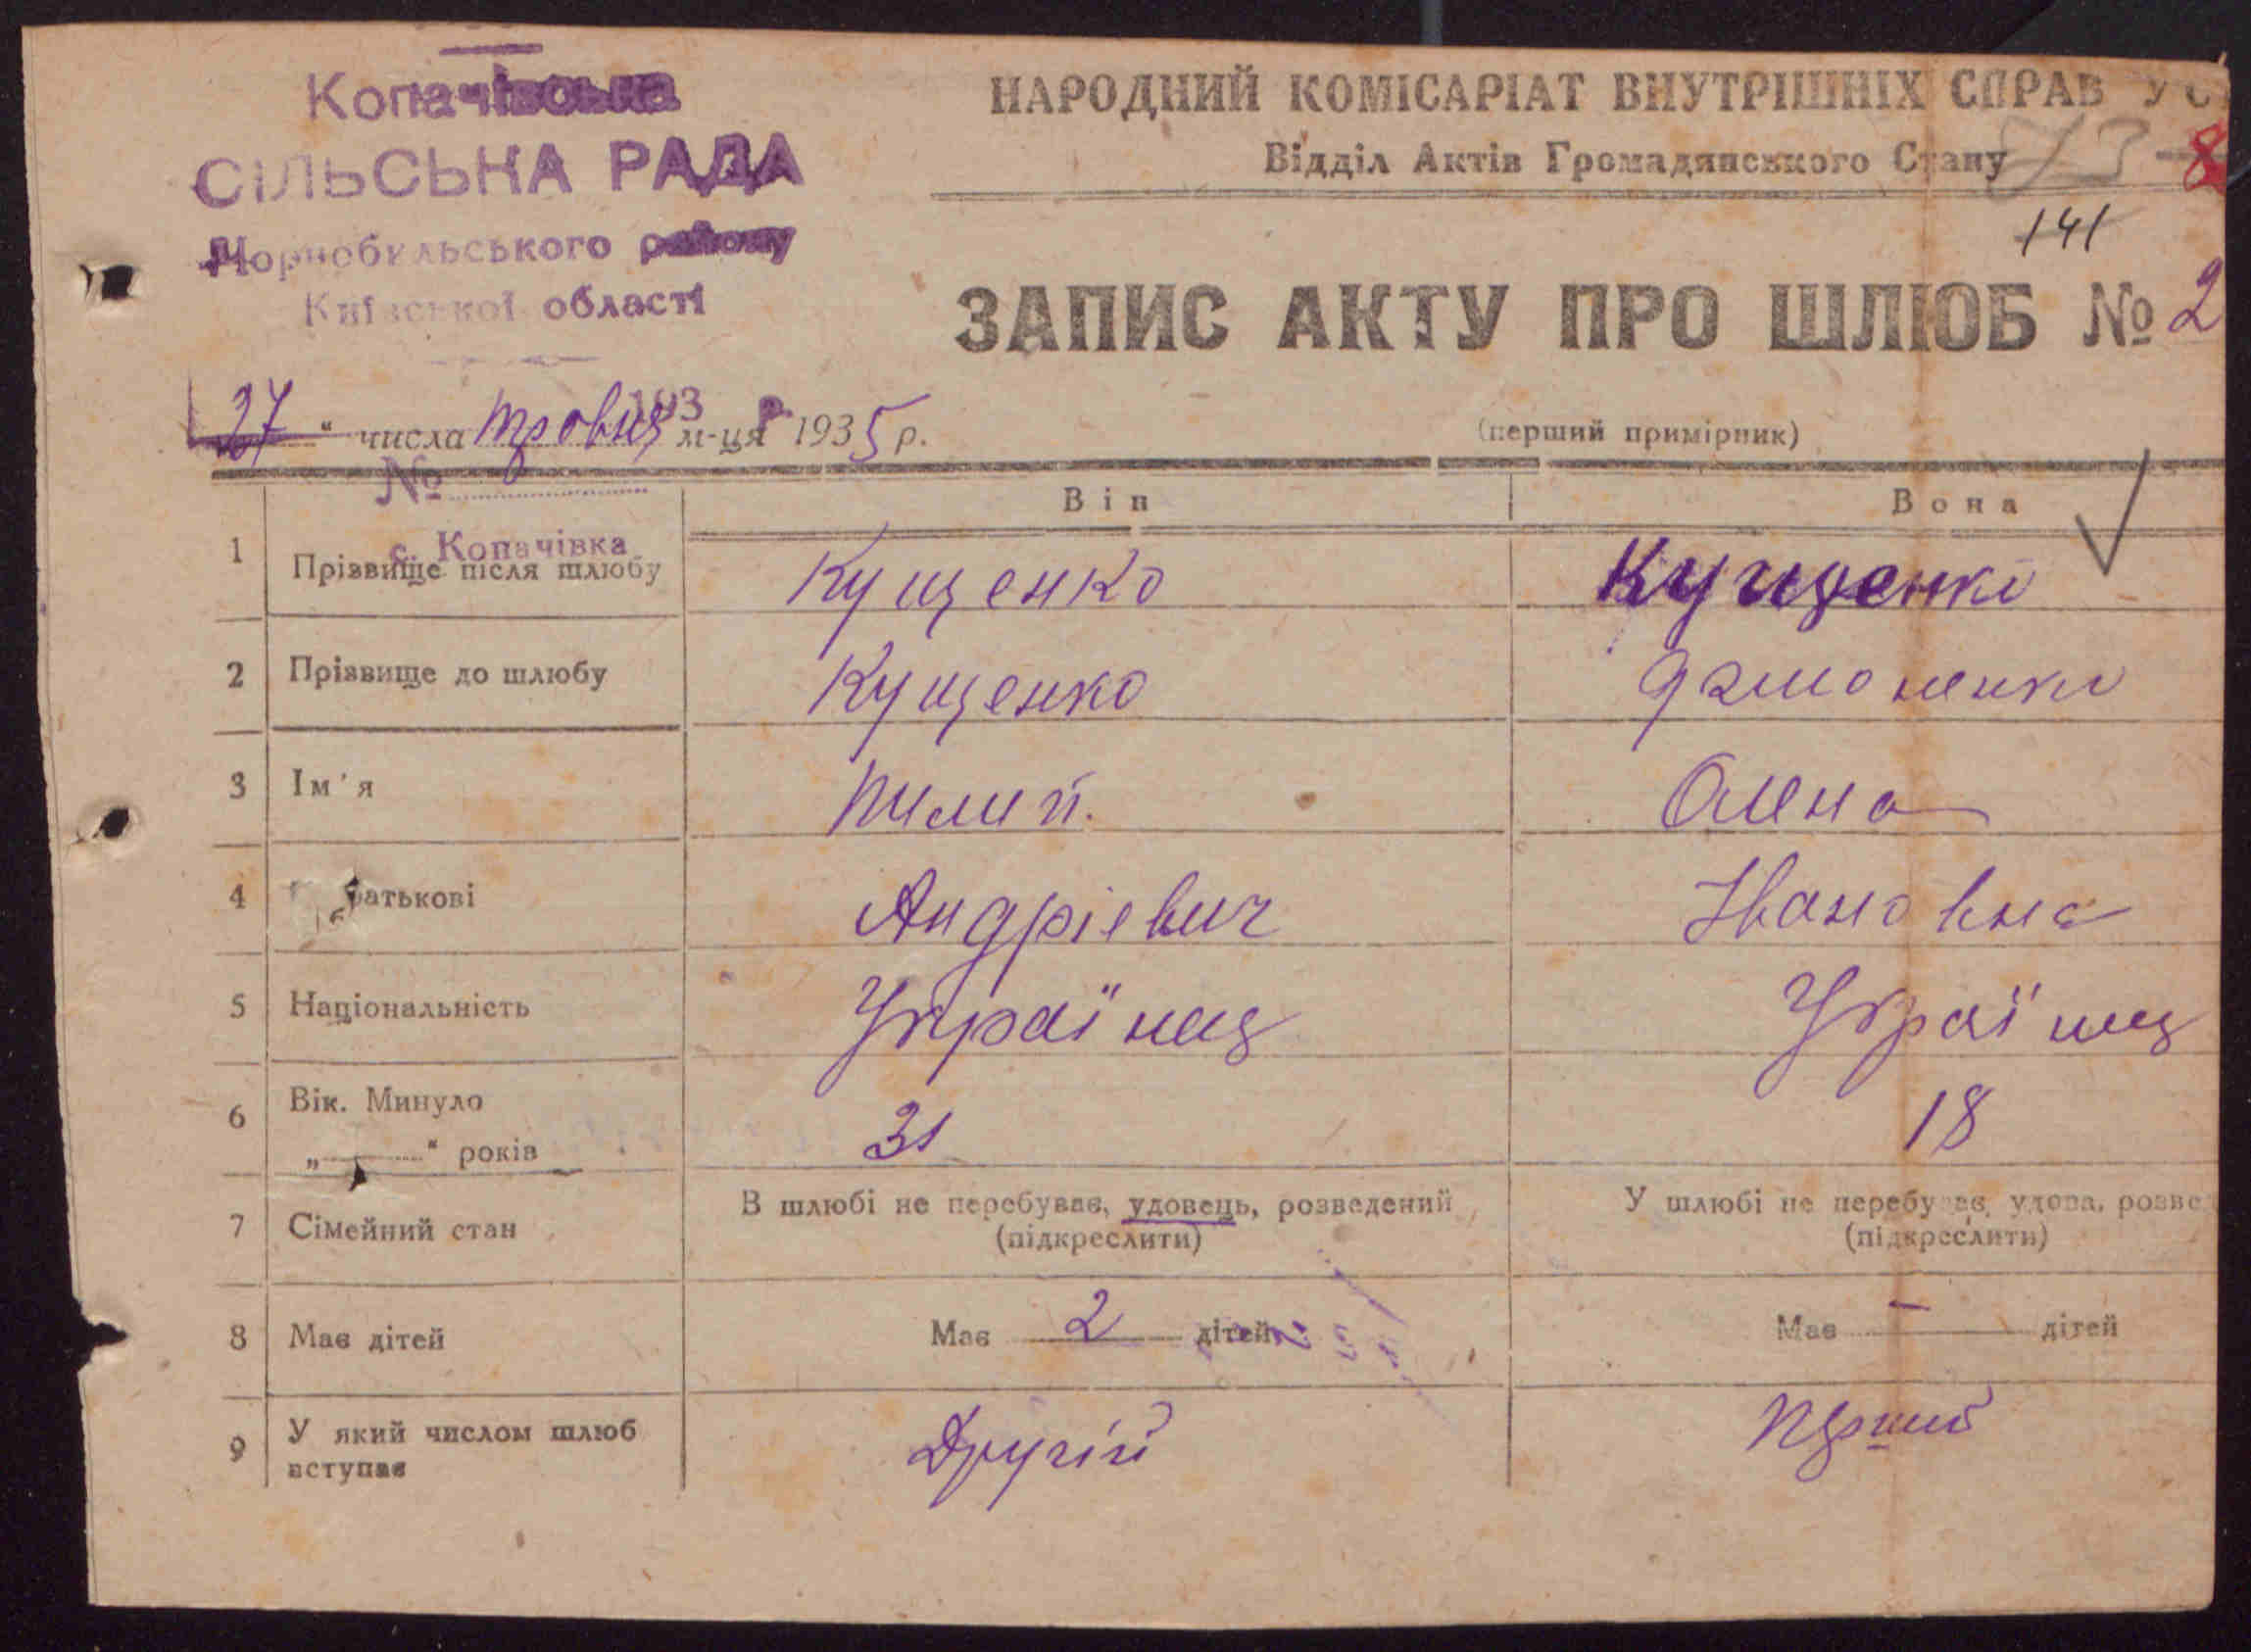 Копачівська
СІЛЬСЬКА РАДА
Чорнобильського району
Київської області
НАРОДНИЙ КОМІСАРІАТ ВНУТРІШНІХ СПРАВ УС
Відділ Актів Громадянського Стану
73
8
141
ЗАПИС АКТУ ПРО ШЛЮБ № 2
193 р.
27 " числа травня м-ця 1935 р.
(перший примірник)
№
Він Вона
с. Копачівка
1 Прізвище після шлюбу Кущенко Кущенко
2 Прізвище до шлюбу Кущенко
3 Ім'я Пилип. Олена
4 батькові Андрієвич Івановна
5 Національність Українец Українц
6 Вік. Минуло „ " років 31 18
7 Сімейний стан В шлюбі не перебував, удовець, розведений У шлюбі не перебуває, удова, розве
(підкреслити) (підкреслити)
8 Має дітей Має 2 дітей Має — дітей
9 У який числом шлюб Другій Перший
вступає